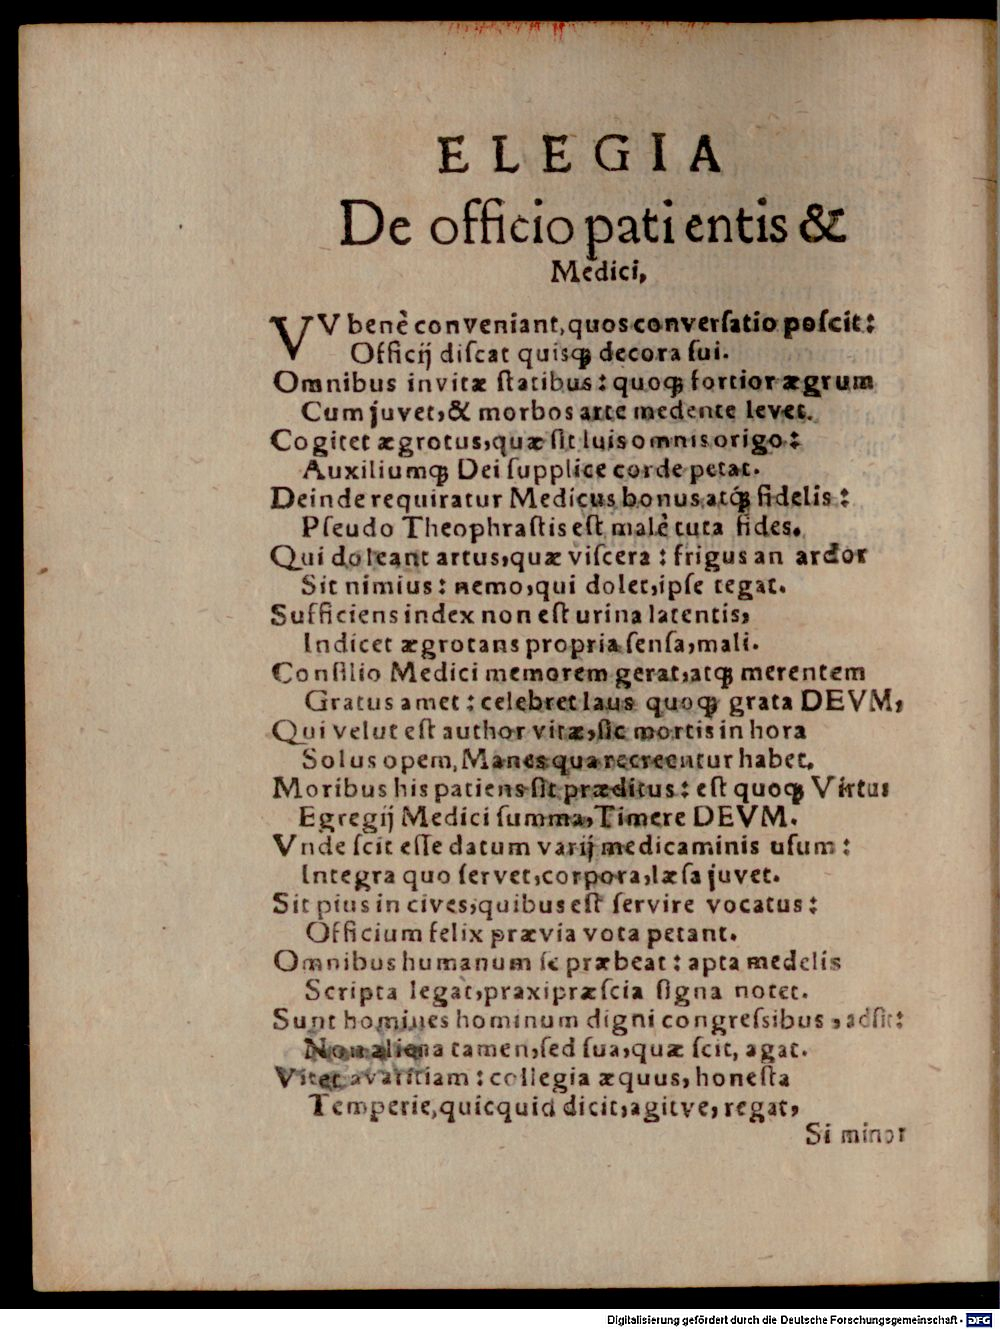 ELEGIA
De officio pati entis &
Medici,
VV benè conveniant, quos conversatio poscit:
Officij discat quisq; decora sui.
Omnibus invitæ statibus: quoq; fortior ægrum
Cum juvet, & morbos arte medente levet.
Cogitet ægrotus, quæ sit luis omnis origo:
Auxiliumq; Dei supplice corde petat.
Deinde requiratur Medicus bonus atq́; fidelis:
Pseudo Theophrastis est malè tuta fides.
Qui doleant artus, quæ viscera: frigus an ardor
Sit nimius: nemo, qui dolet, ipse tegat.
Sufficiens index non est urina latentis,
Indicet ægrotans propria sensa, mali.
Consilio Medici memorem gerat, atq; merentem
Gratus amet: celebret laus quoq; grata DEVM,
Qui velut est author vitæ, sic mortis in hora
Solus opem, Manes qua recreentur habet.
Moribus his patiens sit præditus: est quoq; Virtus
Egregij Medici summa, Timere DEVM.
Vnde scit esse datum varij medicaminis usum:
Integra quo servet, corpora, læsa juvet.
Sit pius in cives, quibus est servire vocatus:
Officium felix prævia vota petant.
Omnibus humanum se præbeat: apta medelis
Scripta legat, praxi præscia signa notet.
Sunt homines hominum digni congressibus, adsit:
Non aliena tamen, sed sua, quæ scit, agat.
Vitet avaritiam: collegia æquus, honesta
Temperie, quicquid dicit, agitve, regat,
Si minor
Digitalisierung gefördert durch die Deutsche Forschungsgemeinschaft - DFG